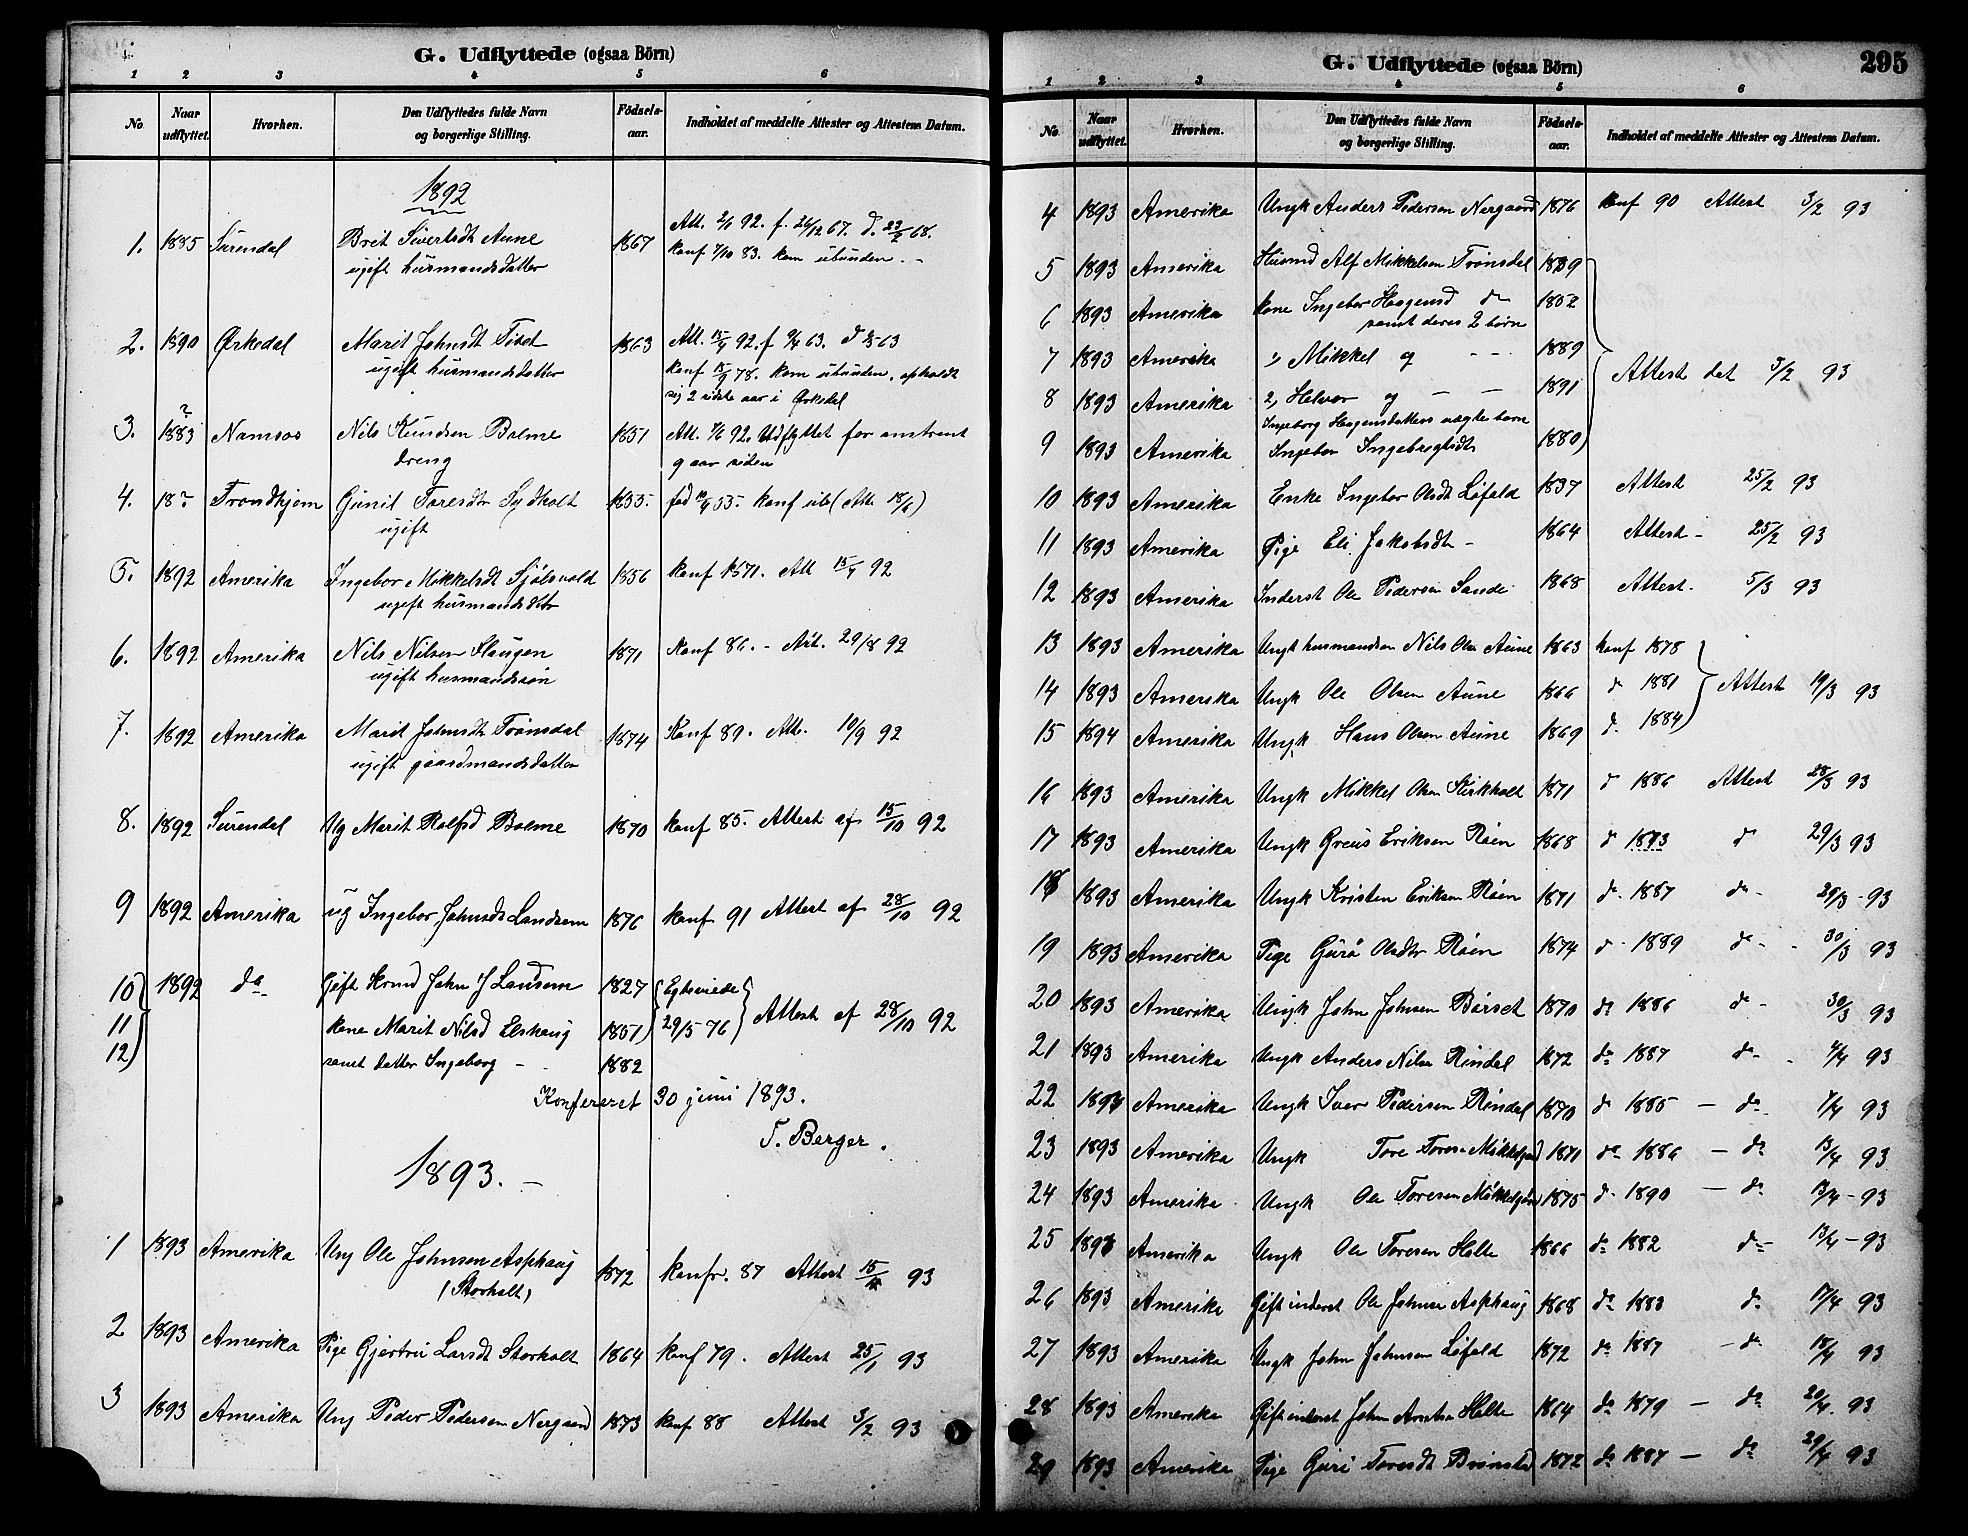 G. Udflyttede (ogsaa Börn)
1 2 3 4 5 6
No. Naar udflyttet. Hvorhen. Den Udflyttedes fulde Navn og borgerlige Stilling. Födsels-aar. Indholdet af meddelte Attester og Attestens Datum.
1892
1. 1885 Surendal Brit Sivertsdt Aune 1867 Att. 2/1 92. f. 26/12 67. d. 23/2 68.
ugift husmandsdatter konf 7/10 83. kom ubunden. -
2. 1890 Ørkedal Marit Johnsdt Tiset 1863 Att. 15/4 92. f 9/4 63. d 63
ugift husmandsdatter konf 15/9 78. kom ubunden, opholdt
sig 2 sidste aar i Ørkedal
3. 1883 ? Namsos Nils Knudsen Bolme 1851 Att. 7/6 92. Udflyttet for omtrent
dreng 9 aar siden
4. 18? Trondhjem Gunil Toresdtr Sydholt 1855. fød 55. konf ub (Att. 18/6)
ugift
5. 1892 Amerika Ingebor Mikkelsdt Sjølsvold 1856 konf 1871. Att 15/7 92
ugift husmandsdtr
6. 1892 Amerika Nils Nilsen Haugen 1871 Konf 86. - Att. 29/8 92
ugift husmandssøn
7. 1892 Amerika Marit Johnsdt Trønsdal 1874 Konf 89. Att. 10/9 92
ugift gaardmandsdatter
8. 1892 Surendal Ug Marit Rolfsd Bolme 1870 konf 85. Attest af 15/10 92
9 1892 Amerika ug Ingebor Johnsdt Landsem 1876 konf 91 Attest af 28/10 92
10 1892 do Gift kmd John J Landsem 1827 Egteviede
11 kone Marit Nilsd Elshaug 1851 29/5 76 Attest af 28/10 92
12 samt datter Ingeborg - 1882
Konfereret 30 juni 1893.
T. Berger.
1893. -
1 1893 Amerika Ung Ole Johnsen Asphaug 1872 konfr. 87 Attest 15/ 93
(Storholt)
2 1893 Amerika Pige Gjertru Larsdt Storholt 1864 konf 79. Attest 25/1 93
3 1893 Amerika Ung Peder Pedersen Nergaard 1873 konf 88 Attest 3/2 93
G. Udflyttede (ogsaa Börn) 295
1 2 3 4 5 6
No. Naar udflyttet. Hvorhen. Den Udflyttedes fulde Navn og borgerlige Stilling. Födsels-aar. Indholdet af meddelte Attester og Attestens Datum.
4 1893 Amerika Ungk Anders Pedersen Nergaard 1876 konf 90 Attest 3/2 93
5 1893 Amerika Husmd Alf Mikkelsen Trønsdal 1859
6 1893 Amerika kone Ingebor Haagensd do 1852
samt deres 2 børn
7 1893 Amerika 1, Mikkel og - - - 1889 Attest dat 3/2 93
8 1893 Amerika 2, Halvor og - - 1891
Ingeborg Haagensdatters uægte barn
9 1893 Amerika Ingebor Ingebrigtsdt 1880
10 1893 Amerika Enke Ingebor Olsdt Løfald 1837 Attest 25/2 93
11 1893 Amerika Pige Eli Jakobsdt - 1864 Attest - 25/2 93
12 1893 Amerika Inderst Ole Pedersen Sande 1868 Attest - 5/3 93
13 1893 Amerika Ungk husmandssøn Nils Olsen Aune 1863 konf 1878
14 1893 Amerika Ungk Ole Olsen Aune 1866 do 1881 Attest 19/3 93
15 1894 Amerika Ungk Hans Olsen Aune 1869 do 1884
16 1893 Amerika Ungk Mikkel Olsen Kirkholt 1871 do 1886 Attest 28/3 93
17 1893 Amerika Ungk Greus Eriksen Røen 1868 do 1883 do 29/3 93
18 1893 Amerika Ungk Kristen Eriksen Røen 1871 do 1887 do 29/3 - 93
19 1893 Amerika Pige Guro Olsdtr Røen 1874 do - 1889 do - - 30/3 93
20 1893 Amerika Ungk John Johnsen Børset 1870 do 1886 do - 30/3 93
21 1893 Amerika Ungk Anders Nilsen Rindal 1872 do 1887 do - - 4/4 93
22 1893 Amerika Ungk Iver Pedersen Rindal 1870 do 1885 - do 7/4 93
23 1893 Amerika Ungk Tore Toresen Mikkelgaard 1871 do 1886 - do 13/4 93
24 1893 Amerika Ungk Ole Toresen 1875 do 1890 - do 13/4 - 93
25 1893 Amerika Ungk Ole Toresen Helle 1866 do 1882 do 13/4 - 93
26 1893 Amerika Gift inderst Ole Johnsen Asphaug 1868 do 1883 do 17/4 93
27 1893 Amerika Ungk John Johnsen Løfald 1872 do 1887 - do 18/4 93
28 1893 Amerika Gift inderst John Helle 1864 do 1879 - do 20/4 93
29 1893 Amerika Pige Guri Toresdt Brønstad 1872 do 1887 - do 29/4 93